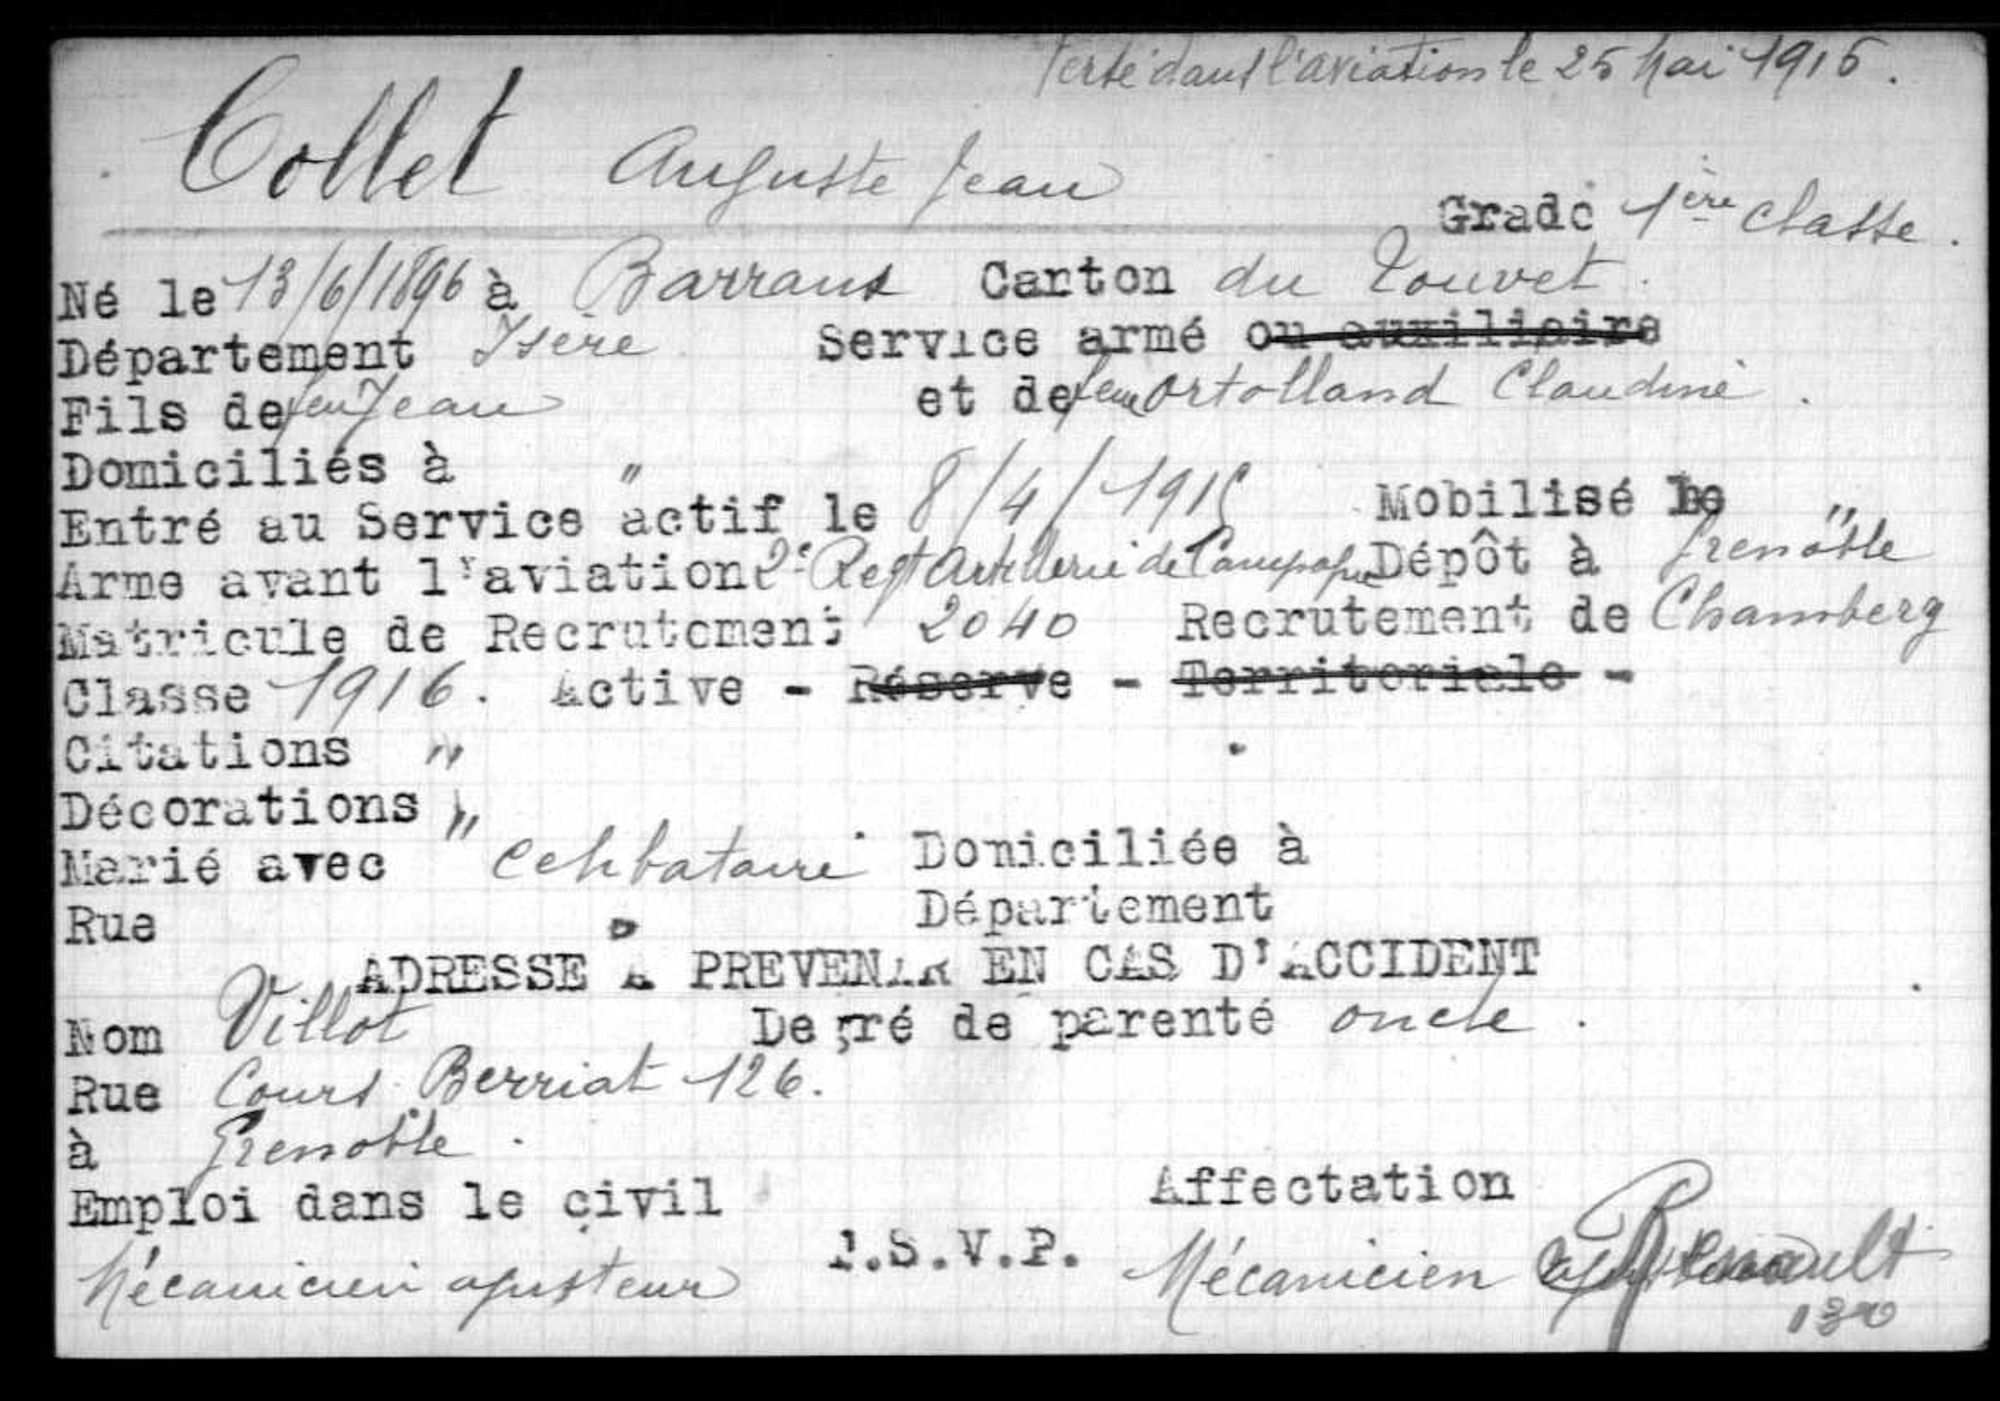 Versé dans l'aviation le 25 Mai 1916.
Collet Auguste Jean
Grade 1ère classe.
Né le 13/6/1896 à Barraux Canton du Touvet.
Département Isère Service armé ou auxiliaire
Fils de feu Jean et de feue Ortolland Claudine.
Domiciliés à "
Entré au Service actif le 8/4/1915 Mobilisé le "
Arme avant l'aviation 2e Regt Artillerie de Campagne Dépôt à Grenoble
Matricule de Recrutement 2040 Recrutement de Chambery
Classe 1916. Active - Réserve - Territoriale -
Citations "
Décorations "
Marié avec " Celibataire Domiciliée à
Rue Département
ADRESSE A PREVENIR EN CAS D'ACCIDENT
Nom Villot Degré de parenté oncle.
Rue Cours Berriat 126.
à Grenoble.
Emploi dans le civil Affectation
Mécanicien ajusteur T.S.V.P. Mécanicien Renault
130